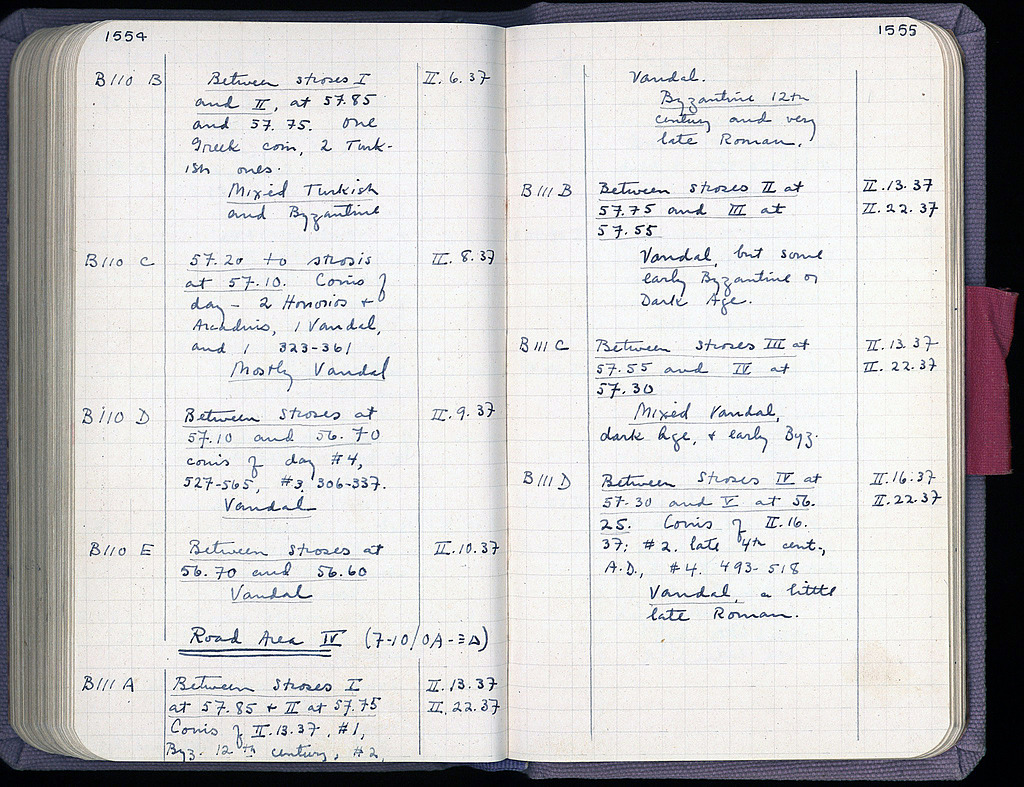 1554
B 110 B Between stroses I II.6.37
and II, at 57.85
and 57.75. One
Greek coin, 2 Turk-
ish ones.
Mixed Turkish
and Byzantine
B 110 C 57.20 to strosis II.8.37
at 57.10. Coins of
day - 2 Honorios +
Arcadius, 1 Vandal,
and 1 323-361
Mostly Vandal
B 110 D Between stroses at II.9.37
57.10 and 56.70
coins of day #4,
527-565, #3, 306-337.
Vandal
B 110 E Between stroses at II.10.37
56.70 and 56.60
Vandal
Road Area IV (7-10/ΟΑ-ΞΔ)
B 111 A Between stroses I II.13.37
at 57.85 + II at 57.75 II.22.37
Coins of II.13.37, #1,
Byz. 12th century, #2,
1555
Vandal.
Byzantine 12th
century and very
late Roman.
B 111 B Between stroses II at II.13.37
57.75 and III at II.22.37
57.55
Vandal, but some
early Byzantine or
Dark Age.
B 111 C Between stroses III at II.13.37
57.55 and IV at II.22.37
57.30
Mixed Vandal,
dark age, + early Byz.
B 111 D Between stroses IV at II.16.37
57.30 and V at 56. II.22.37
25. Coins of II.16.
37: #2. late 4th cent.,
A.D., #4. 493-518
Vandal, a little
late Roman.